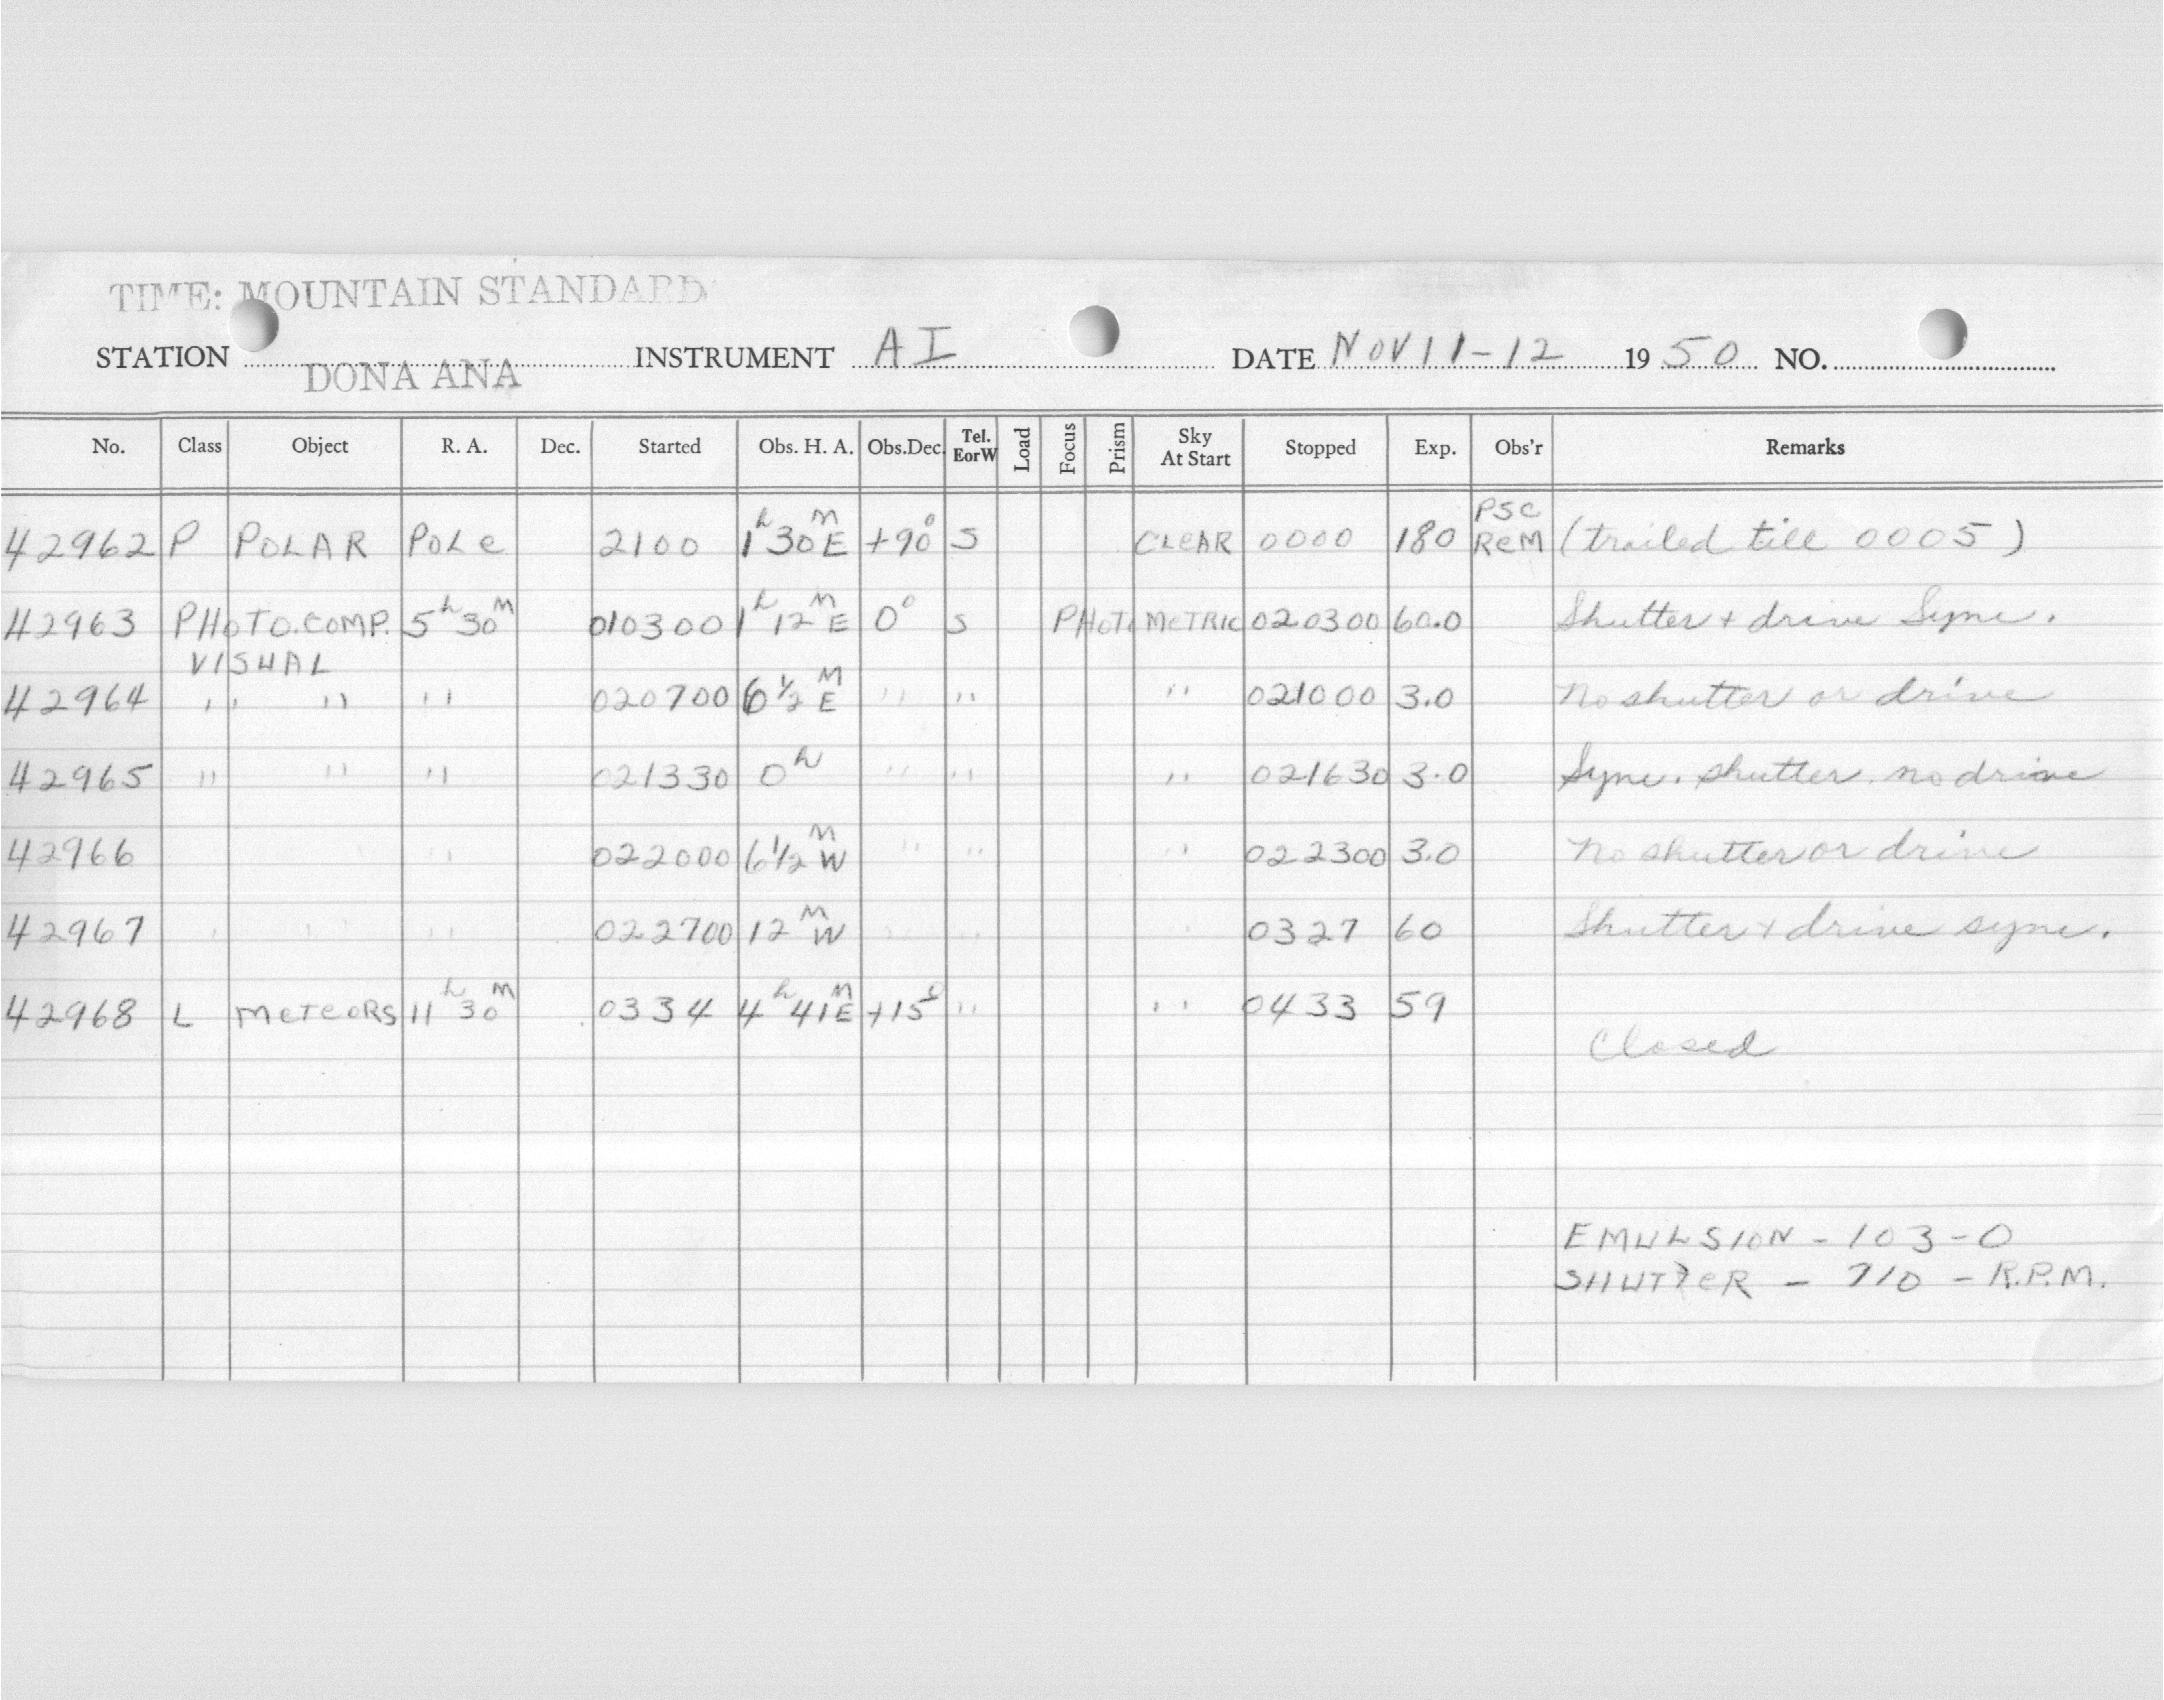 TIME: MOUNTAIN STANDARD
STATION DONA ANA INSTRUMENT AI DATE NOV 11-12 1950 NO.
No. Class Object R. A. Dec. Started Obs. H. A. Obs.Dec. Tel. EorW Load Focus Prism Sky At Start Stopped Exp. Obs'r Remarks
42962 P POLAR POLE 2100 1h 30M E +90° S CLEAR 0000 180 PSC REM (trailed till 0005)
42963 PHOTO.COMP. VISUAL 5h 30M 010300 1h 12M E 0° S PHOTOMETRIC 020300 60.0 Shutter + drive Sync.
42964 " " " 020700 6 1/2 M E " " " 021000 3.0 No shutter or drive
42965 " " " 021330 0h " " " 021630 3.0 Sync. shutter. no drive
42966 " " " 022000 6 1/2 M W " " " 022300 3.0 No shutter or drive
42967 " " " 022700 12 M W " " " 0327 60 Shutter + drive sync.
42968 L METEORS 11h 30M 0334 4h 41M E +15° " " 0433 59
Closed
EMULSION - 103-O
SHUTTER - 710 - R.P.M.